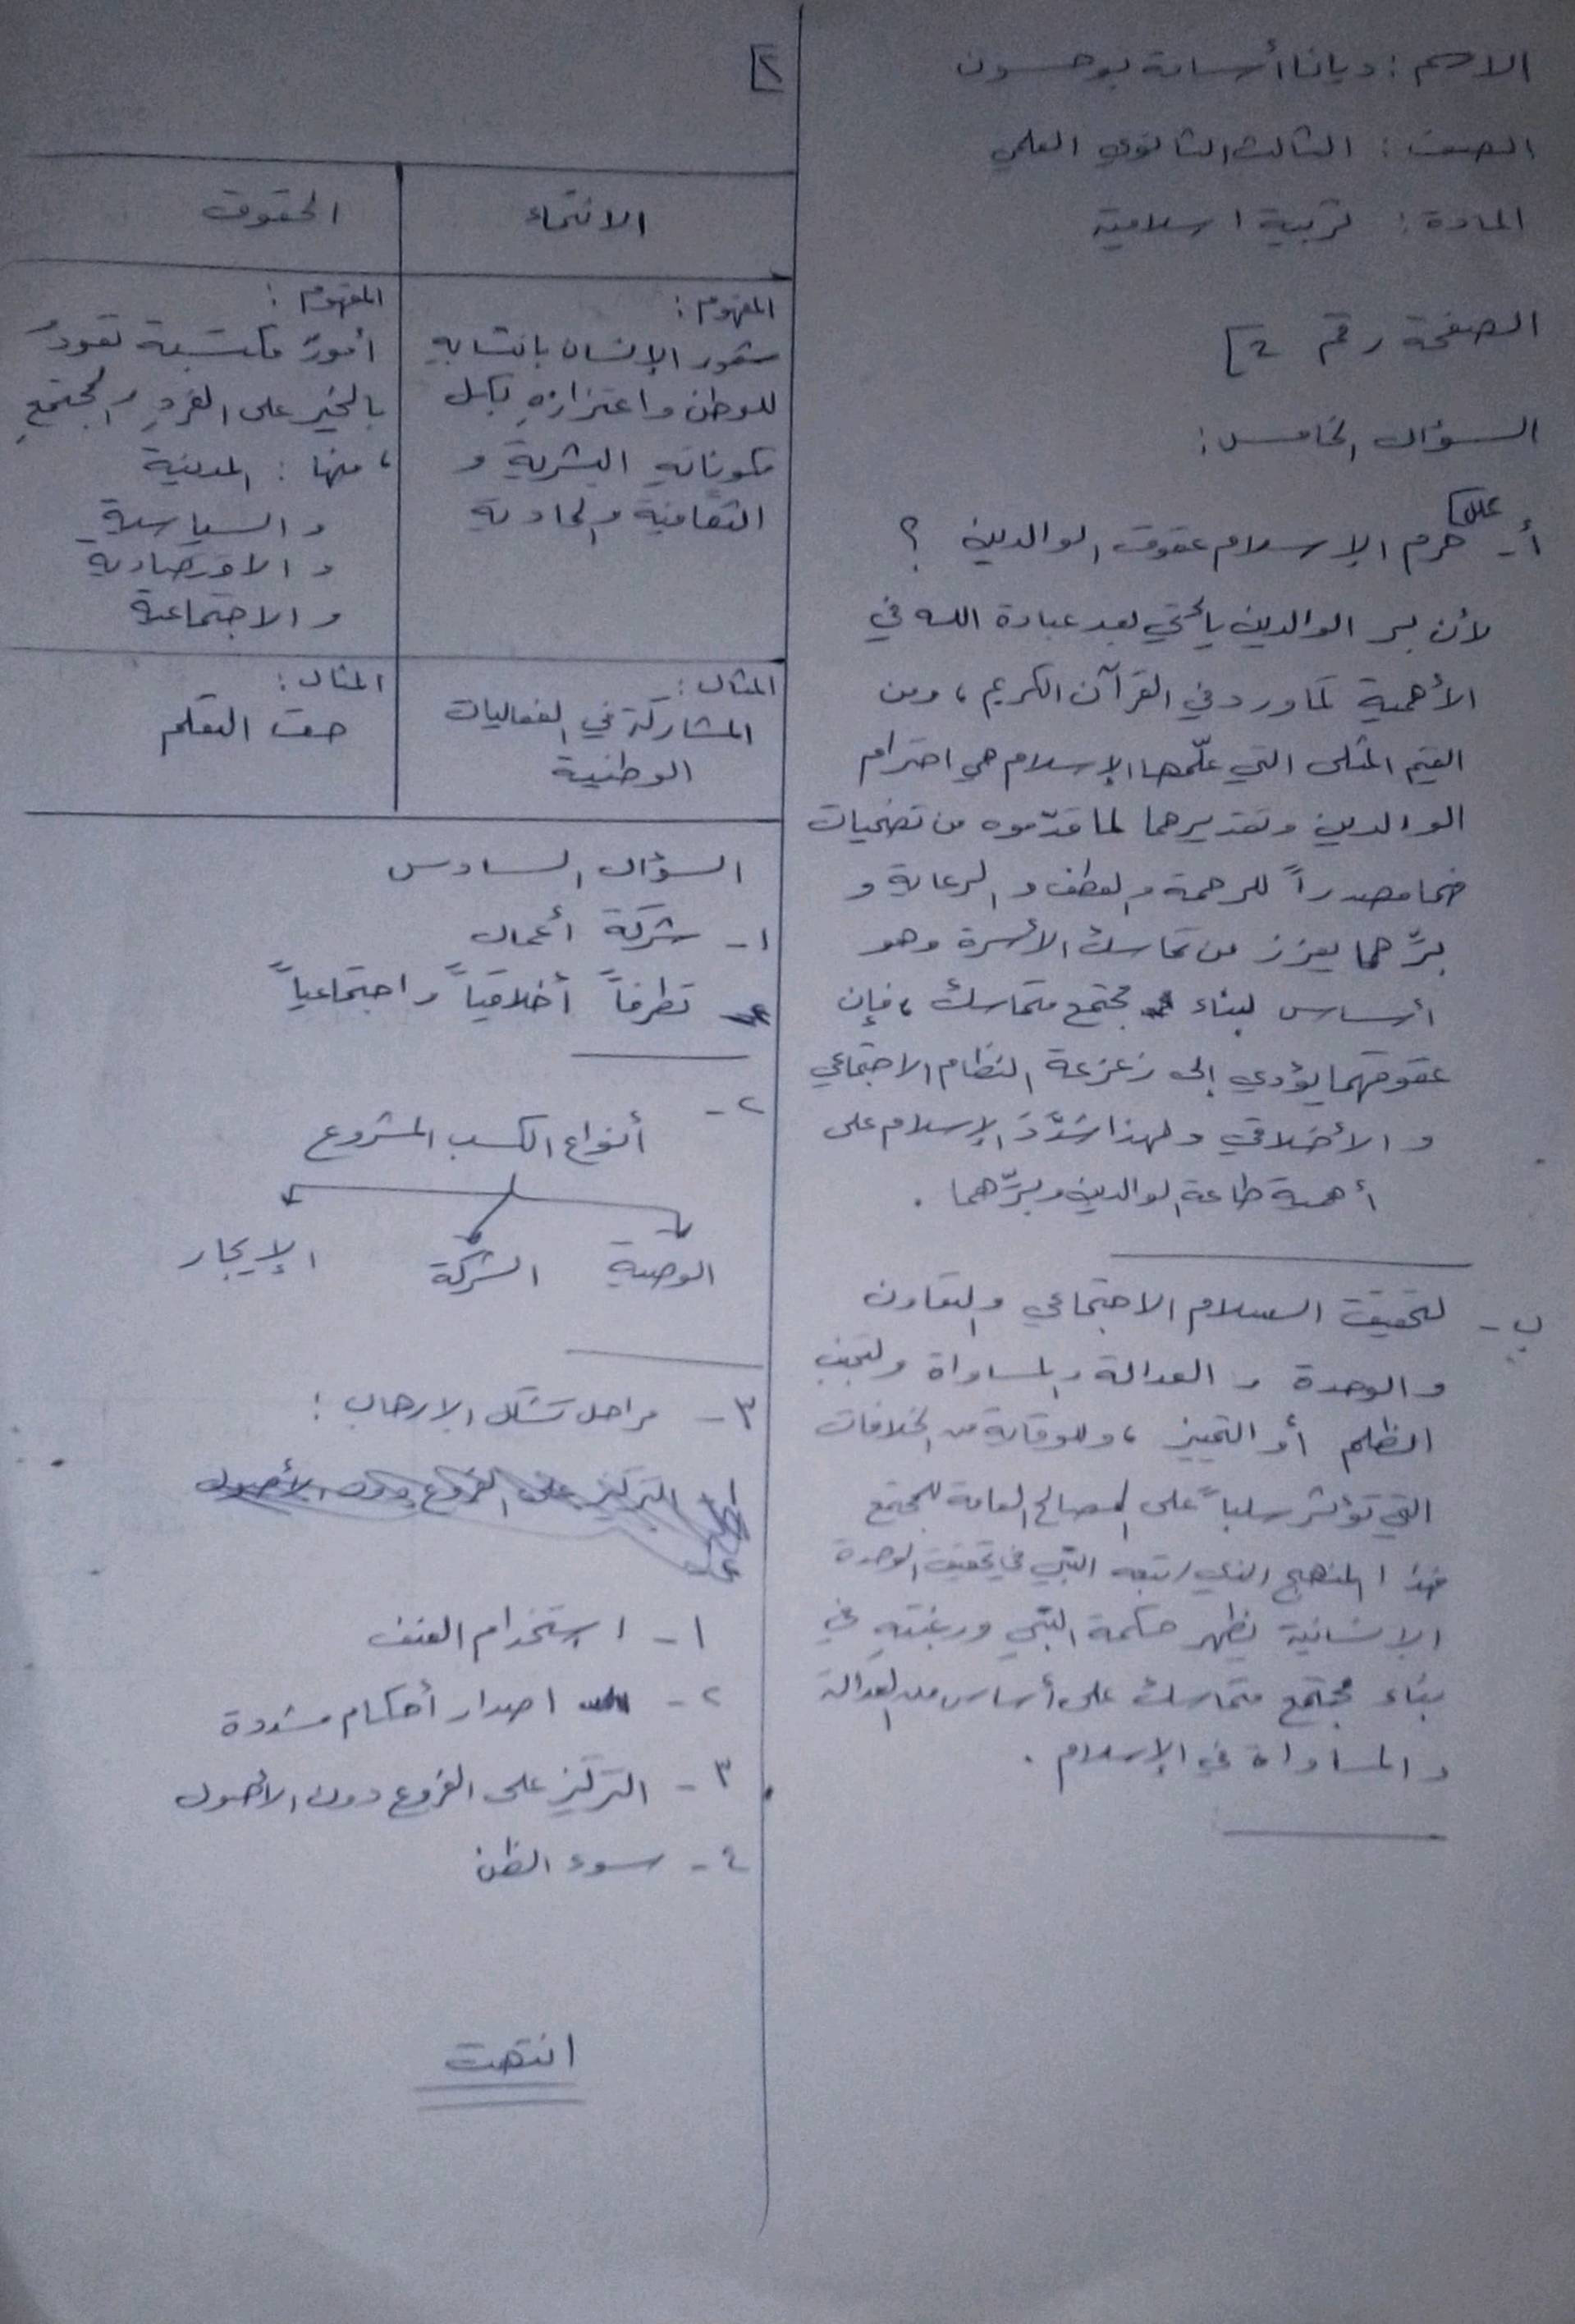 الاسم : ديانا أسامة بوحسون
الصف : الثالث الثانوي العلمي
المادة : تربية اسلامية
الصفحة رقم ٤]
السؤال الخامس :
علل]
أ- حرم الإسلام عقوق الوالدين ؟
لأن بر الوالدين يأتي بعد عبادة الله في
الأهمية كما ورد في القرآن الكريم ، ومن
القيم المثلى التي علّمها الإسلام هي احترام
الوالدين وتقديرهما لما قدّموه من تضحيات
فهما مصدراً للرحمة والعطف والرعاية و
برّهما يعزز من تماسك الأسرة وهو
أساس لبناء مجتمع متماسك ، فإن
عقوقهما يؤدي إلى زعزعة النظام الاجتماعي
و الأخلاقي ولهذا شدَّدَ الإسلام على
أهمية طاعة الوالدين وبرّهما .
ب - لتحقيق السلام الاجتماعي والتعاون
والوحدة و العدالة والمساواة ولتجنب
الظلم أو التمييز ، وللوقاية من الخلافات
التي تؤثر سلباً على المصالح العامة للمجتمع
فهذا المنهج الذي اتبعه النبي في تحقيق الوحدة
الإنسانية يظهر حكمة النبي ورغبته في
بناء مجتمع متماسك على أساس من العدالة
و المساواة في الإسلام .
[٢
الانتماء
الحقوق
المفهوم :
شعور الإنسان بانتسابهِ
للوطن واعتزازهِ بكل
مكوناتهِ البشرية و
الثقافية والمادية
المفهوم :
أمورٌ مكتسبة تعودُ
بالخير على الفردِ والمجتمعِ
، منها : المدنية
و السياسية
و الاقتصادية
و الاجتماعية
المثال :
المشاركة في الفعاليات
الوطنية
المثال :
حق التعلم
السؤال السادس
١- شركة أعمال
تطرفاً أخلاقياً واجتماعياً
٢-
أنواع الكسب المشروع
الوصية الشركة الإيجار
٣- مراحل تشكل الإرهاب :
١- استخدام العنف
٢- اصدار أحكام مشددة
٣- التركيز على الفروع دون الأصول
٤- سوء الظن
انتهت